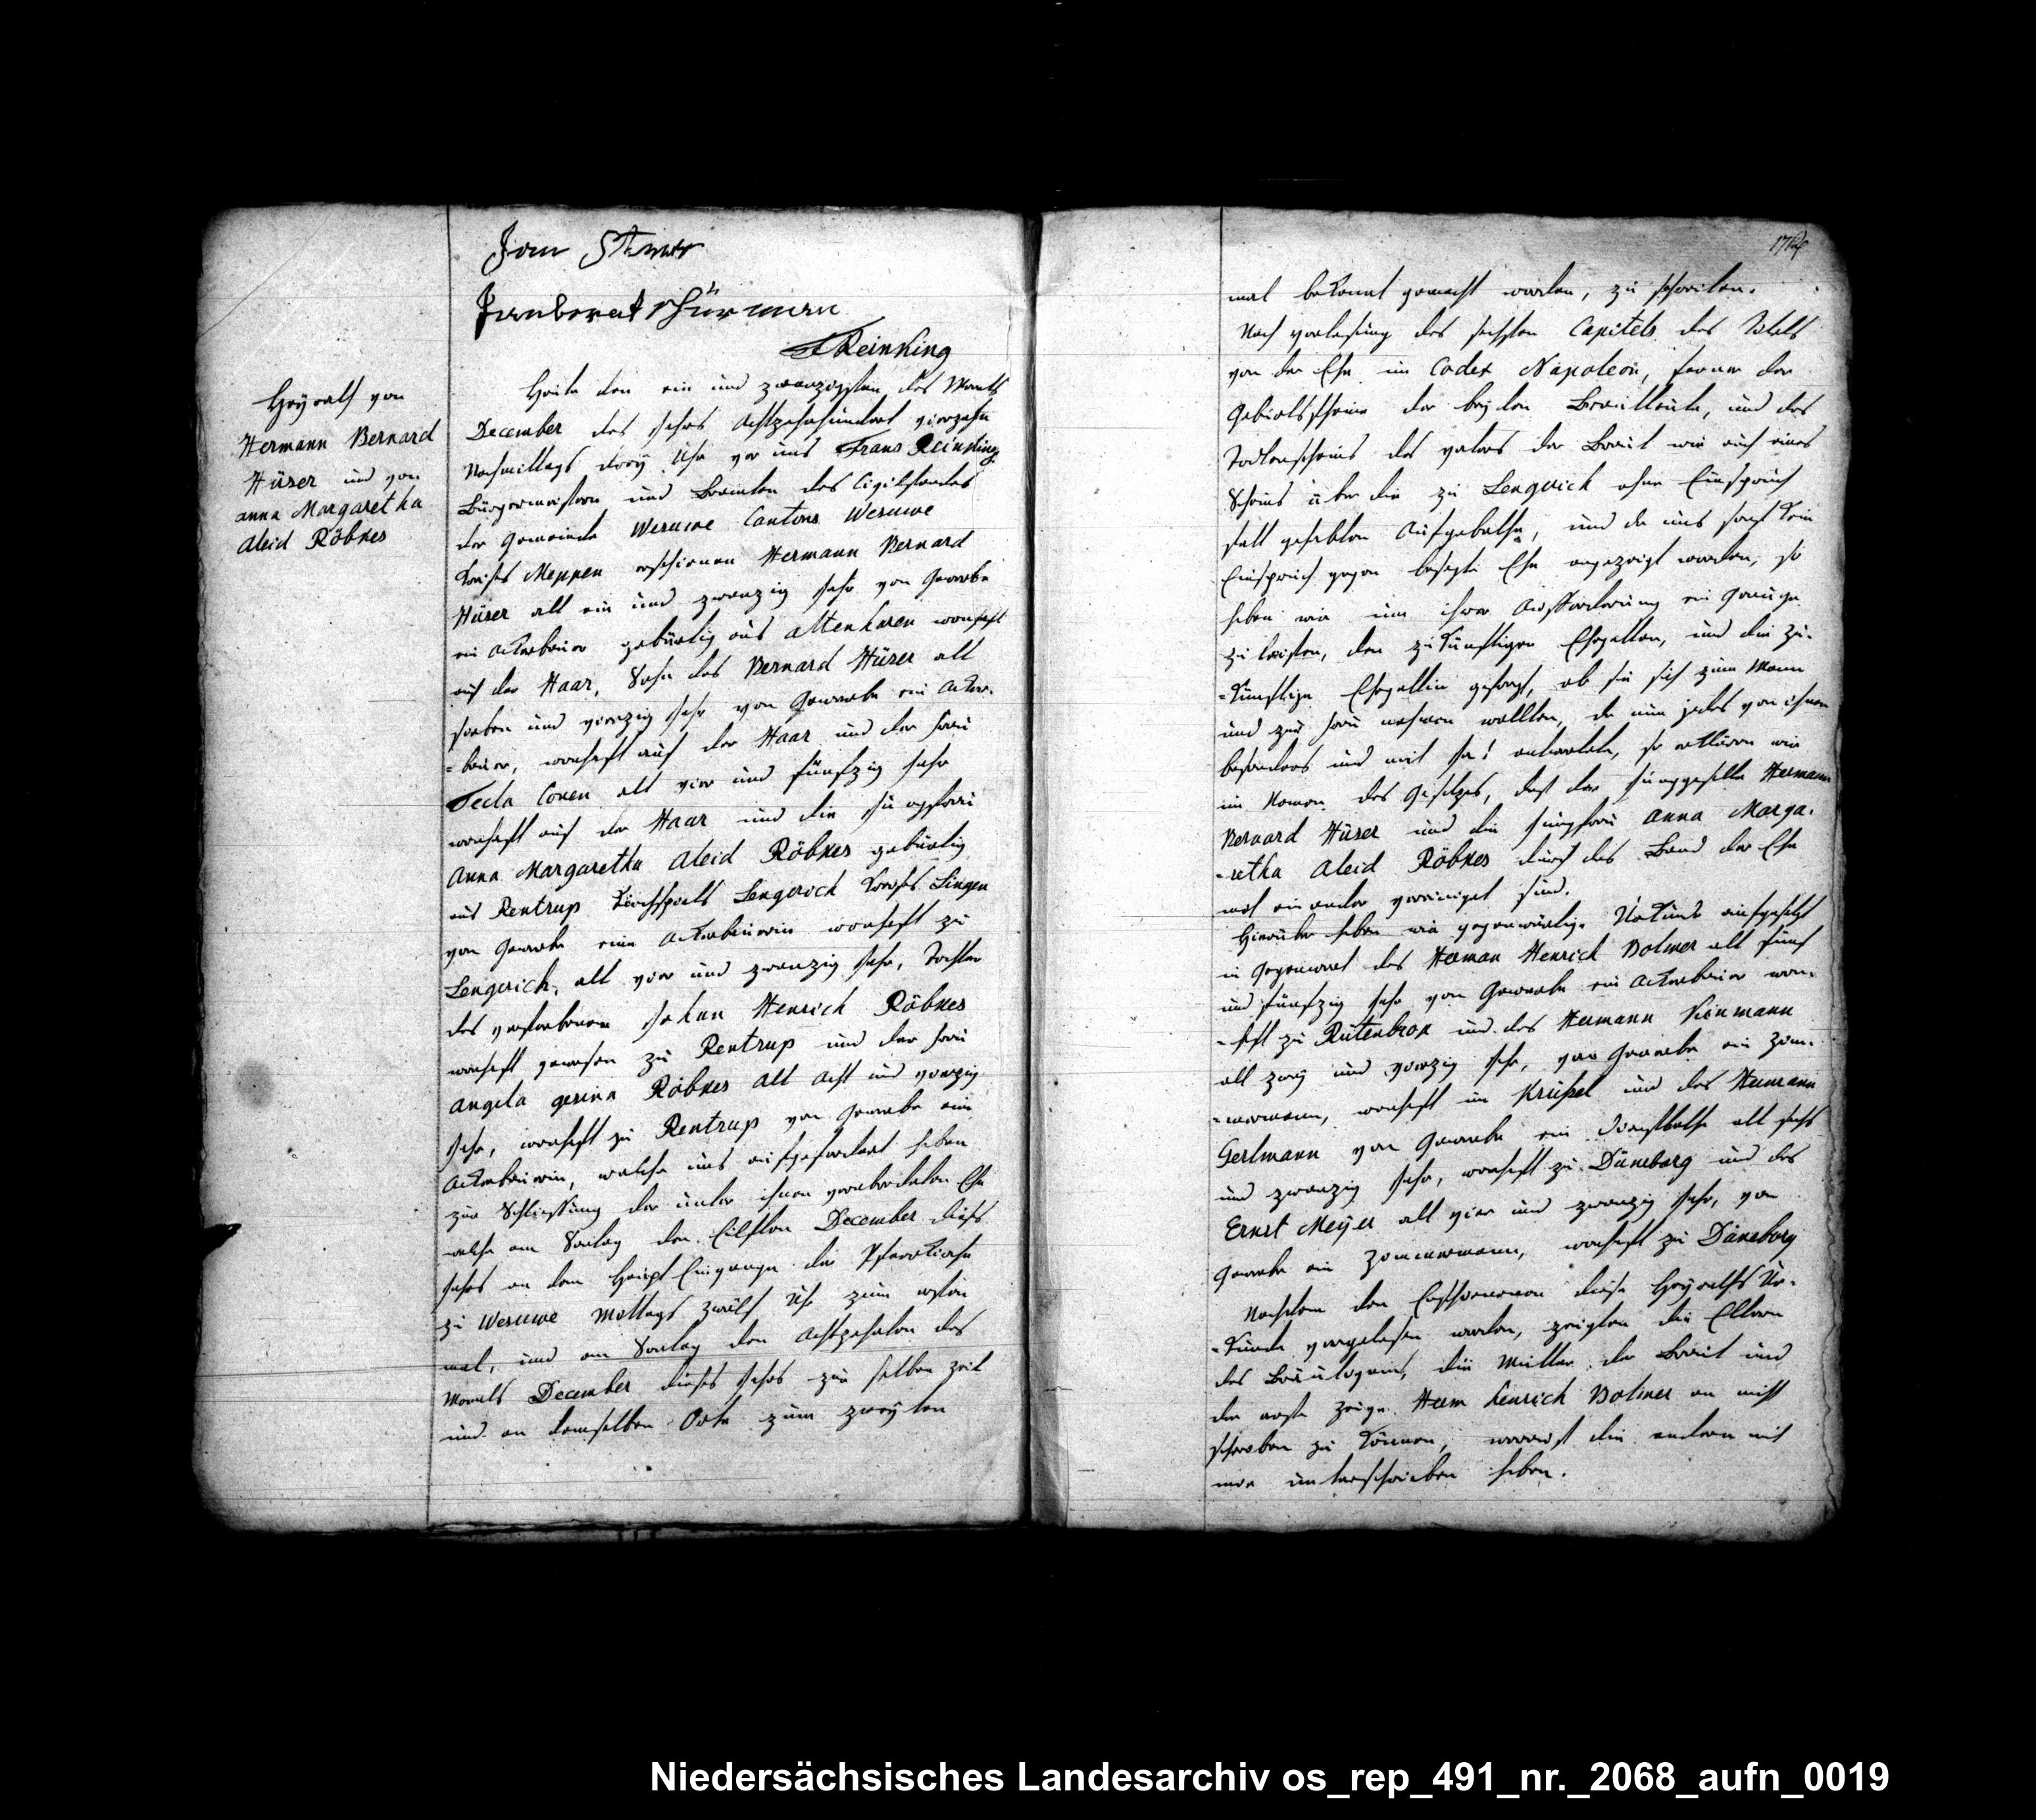 Jan
Janberat Schürman
FReinking
Heyrath von
Hermann Bernard
Hüser und von
anna Margaretha
Aleid Röbkes
Heute den ein und zwanzigsten des Monaths
December des Jahrs Achtzehnhundert vierzehn
Nachmittags drey Uhr vor uns Frans Reinking
Bürgermeistern und Beamten des Civilstandes
der Gemeinde Wesuwe Cantons Wesuwe
Kreises Meppen erschienen Hermann Bernard
Hüser alt ein und zwanzig Jahr von Gewerbe
ein Ackerbauer gebürtig aus altenharen wonhaft
auf der Haar, Sohn des Bernard Hüser alt
sieben und vierzig Jahr von Gewerbe ein Acker-
-bauer, wonhaft auf der Haar und der Frau
Tecla Coven alt vier und fünfzig Jahr
wonhaft auf der Haar und die Jungfrau
Anna Margaretha Aleid Röbkes gebürtig
aus Rentrup Kirchspiels Lengerich Kreises Lingen
von Gewerbe eine Ackerbäuerin wonhaft zu
Lengerich, alt vier und zwanzig Jahr, Tochter
des verstorbenen Johan Henrich Röbkes
wonhaft gewesen zu Rentrup und der Frau
Angela gesina Röbkes alt acht und vierzig
Jahr, wonhaft zu Rentrup von Gewerbe eine
Ackerbäuerin, welche uns aufgefordert haben
zur Schliessung der unter ihnen verabredeten Ehe
welche am Sontag den Eilften December dieses
Jahrs an dem Haupt Eingange der Pfarrkirche
zu Wesuwe Mittags zwölf Uhr zum ersten
mal, und am Sontag den Achtzehnten des
Monats December dieses Jahrs zur selben Zeit
und an demselben Orte zum zweyten
mal bekannt gemacht worden, zu schreiten.
Nach Vorlesung des sechsten Capitels des Titels
von der Ehe im Codex Napoleon, ferner der
Geburtsscheine der beyden Brautleute, und des
Todtenscheins des Vaters der Braut wie auch eines
Scheins über die zu Lengerich ohne Einspruch
statt gehabten Aufgebothe, und da uns sonst kein
Einspruch gegen besagte Ehe angezeigt worden, so
haben wir um ihrer Aufforderung ein Genüge
zu leisten, den zukünftigen Ehegatten, und die zu-
-künftige Ehegattin gefragt, ob sie sich zum Mann
und zur Frau nehmen wollten, da nun jedes von ihnen
besonders und mit Ja! antwortete, so erklären wir
im Namen des Gesetzes, daß der Junggeselle Hermann
Bernard Hüser und die Jungfrau Anna Marga-
-retha Aleid Röbkes durch das Band der Ehe
mit einander vereiniget sind.
Hierüber haben wir gegenwärtige Urkunde aufgesetzt
in Gegenwart des Herman Henrich Bolmer alt fünf
und fünfzig Jahr von Gewerbe ein Ackerbauer won-
-haft zu Rütenbrok und des Hermann
alt zwey und vierzig Jahr, von Gewerbe ein Zim-
-mermann, wonhaft im Krüßel und des Hermann
Gerlmann von Gewerbe ein Dienstbothe alt sechs
und zwanzig Jahr, wonhaft zu Düneburg und des
Ernst Meÿer alt vier und zwanzig Jahr, von
Gewerbe ein Zimmermann, wonhaft zu Düneburg
Nachdem den Erschienenen diese Heyraths Ur-
-kunde vorgelesen worden, zeigten die Eltern
des Bräutigams, die Mutter der Braut und
der erste Zeuge Herm henrich Bolmer an nicht
schreiben zu können, worauf die andern mit
mir unterschrieben haben.
Niedersächsisches Landesarchiv os_rep_491_nr._2068_aufn_0019